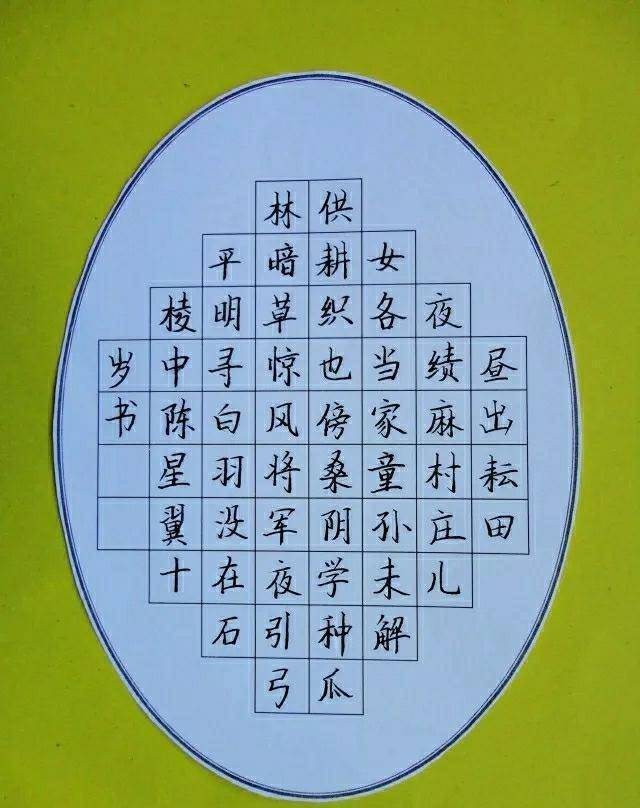 昼出耘田
夜绩麻村庄儿
女各当家童孙未解
供耕织也傍桑阴学种瓜
林暗草惊风将军夜引弓
平明寻白羽没在石
棱中陈星翼十
岁书